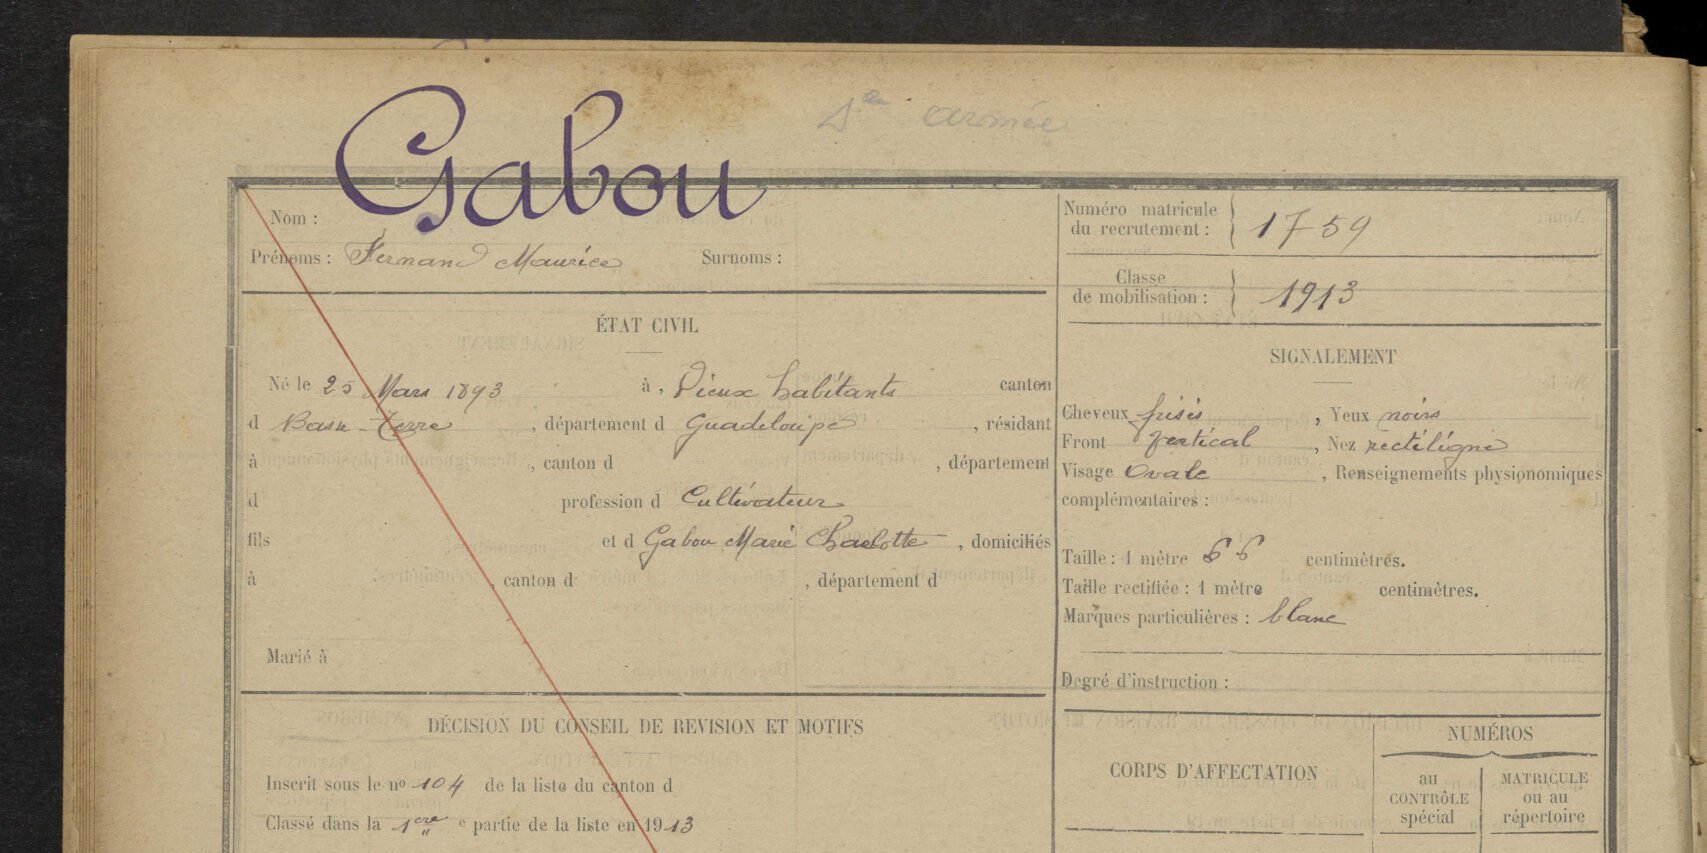 Gabou
1ère armée
Nom :
Prénoms : Fernand Maurice Surnoms :
Numéro matricule du recrutement : 1759
Classe de mobilisation : 1913
ÉTAT CIVIL
Né le 25 Mars 1893 à, Vieux habitants canton
d Basse-terre, département d Guadeloupe, résidant
à , canton d , département
d profession d Cultivateur
fils et d Gabou Marie Charlotte, domiciliés
à , canton d , département d
Marié à
SIGNALEMENT
Cheveux frisés, Yeux noirs
Front vertical, Nez rectiligne
Visage Ovale, Renseignements physionomiques
complémentaires :
Taille : 1 mètre 66 centimètres.
Taille rectifiée : 1 mètre centimètres.
Marques particulières : blanc
Degré d'instruction :
DÉCISION DU CONSEIL DE REVISION ET MOTIFS
Inscrit sous le nº 104 de la liste du canton d
Classé dans la 1ere e partie de la liste en 1913
CORPS D'AFFECTATION
NUMÉROS
au
CONTRÔLE
spécial
MATRICULE
ou au
répertoire